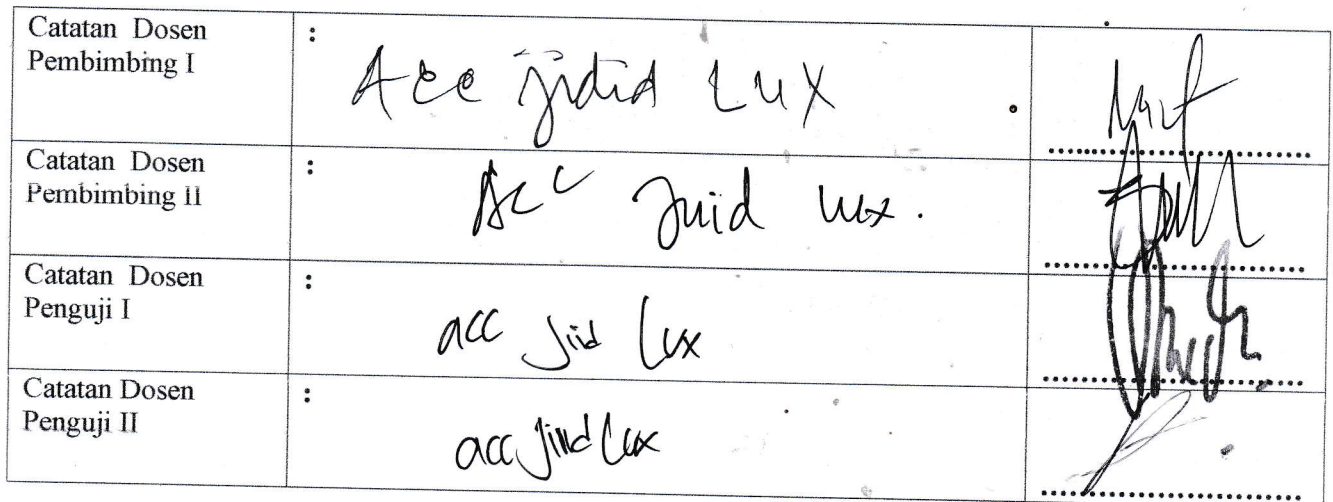 Catatan Dosen :
Pembimbing I
Acc jidid LUX
Catatan Dosen :
Pembimbing II
Acc Juid lux.
Catatan Dosen :
Penguji I
acc Jiid Lux
Catatan Dosen :
Penguji II
acc Jiid Lux